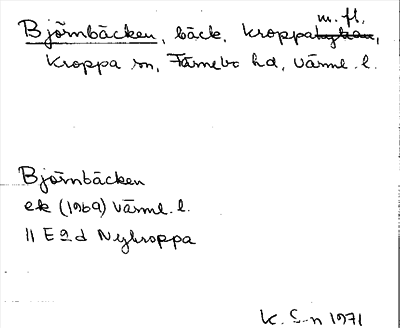 m. fl.
Björnbäcken, bäck, Kroppa
Kroppa sn, Färnebo hd, Värml. l.
Björnbäcken
ek (1969) Värml. l.
11 E 2 d Nykroppa
K. S-n 1971